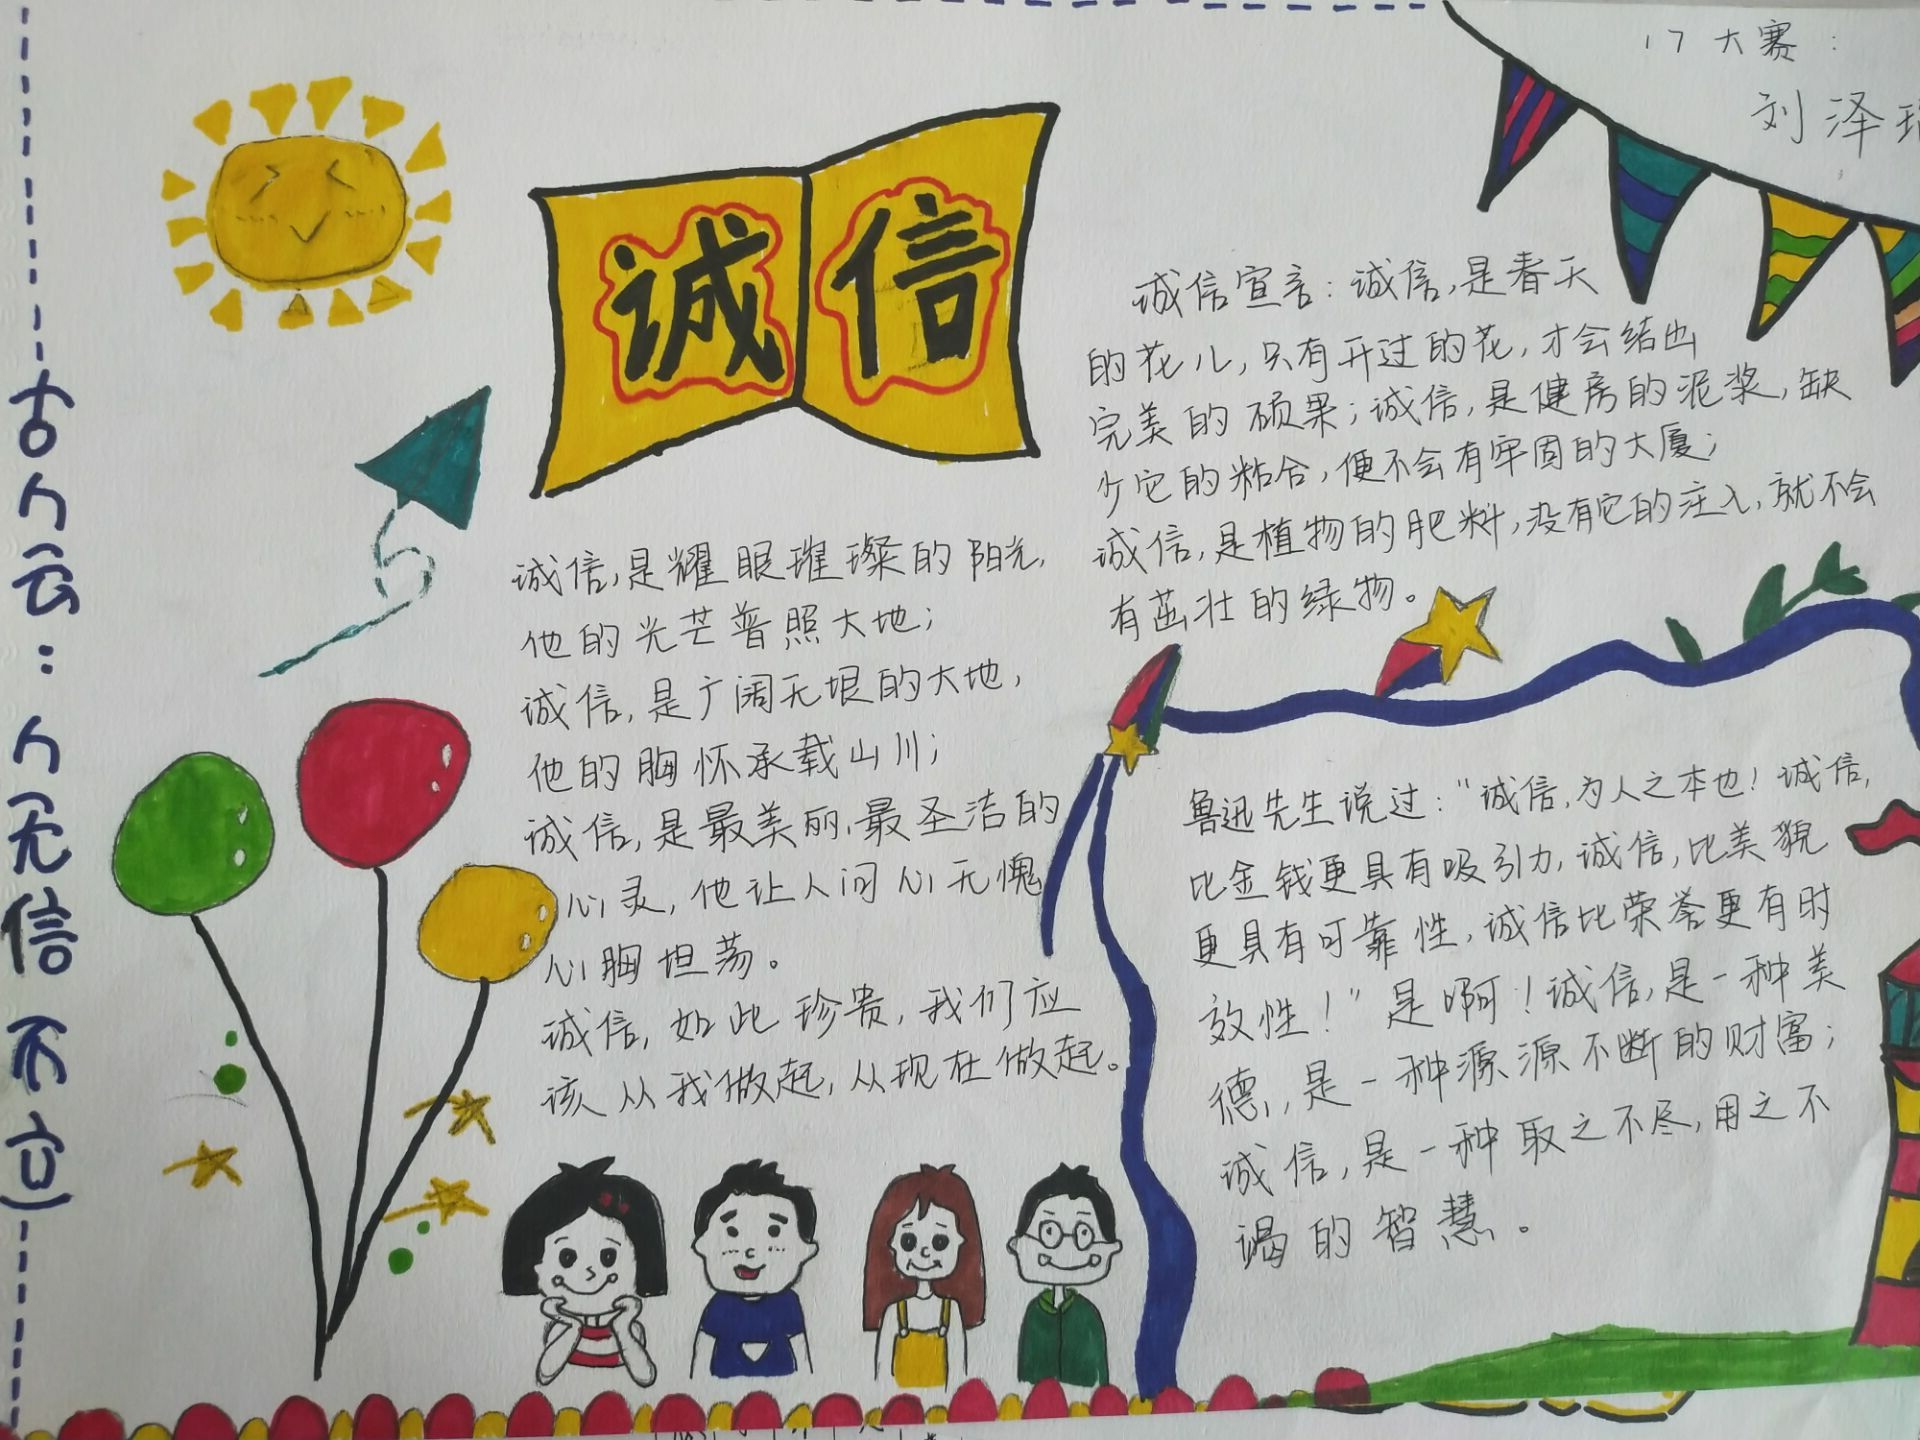 17大赛：
刘泽
诚信
古人云：人无信不立
诚信宣言：诚信，是春天
的花儿，只有开过的花，才会结出
完美的硕果；诚信，是健房的泥浆，缺
少它的粘合，便不会有牢固的大厦；
诚信，是植物的肥料，没有它的注入，就不会
有茁壮的绿物。
诚信，是耀眼璀璨的阳光，
他的光芒普照大地；
诚信，是广阔无垠的大地，
他的胸怀承载山川；
诚信，是最美丽、最圣洁的
心灵，他让人问心无愧
心胸坦荡。
诚信，如此珍贵，我们应
该从我做起，从现在做起。
鲁迅先生说过：“诚信，为人之本也！诚信，
比金钱更具有吸引力，诚信，比美貌
更具有可靠性，诚信比荣誉更有时
效性！”是啊！诚信，是一种美
德，是一种源源不断的财富；
诚信，是一种取之不尽，用之不
竭的智慧。